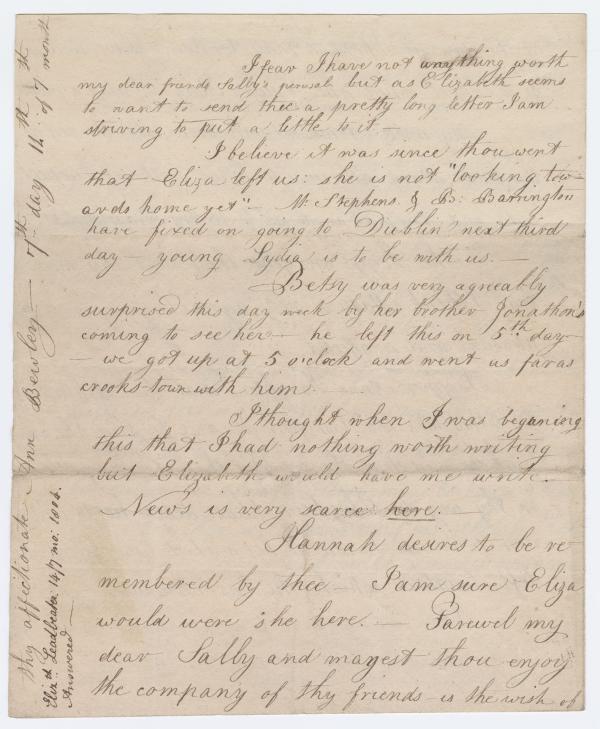 I fear I have not anything worth
my dear friends Sally's perusal but as Elizabeth seems
to want to send thee a pretty long letter I am
striving to put a little to it —
I believe it was since thou went
that Eliza left us: she is not "looking tow-
ards home yet" — M: Stephens & B: Barrington
have fixed on going to Dublin next third
day — young Lydia is to be with us. —
Betsy was very agreeably
surprised this day week by her brother Jonathon's
coming to see her — he left this on 5th day
— we got up at 5 o'clock and went us far as
crooks-town with him. —
I thought when I was begining
this that I had nothing worth writing
but Elizabeth would have me write. —
News is very scarce here. —
Hannah desires to be re-
membered by thee — I am sure Eliza
would were she here. — Farewel my
dear Sally and mayest thou enjoy
the company of thy friends — is the wish of
thy affectionate Ann Bewley — 7th day 14th of 7th month
Elizth Leadbeater 14/7 mo: 1806.
Answered —